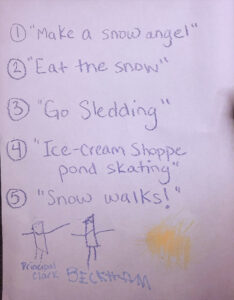 ① "Make a snow angel"
② "Eat the snow"
③ "Go Sledding"
④ "Ice-cream Shoppe
pond skating"
⑤ "Snow walks!"
Principal
Clark
BECKHAM